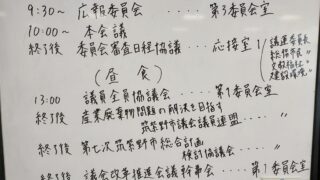 9:30~ 広報委員会 ····· 第3委員会室
10:00~ 本会議
終了後 委員会審査日程協議 ···· 応接室1
議運委員長
総務市民〃
文教福祉〃
建設環境〃
(昼食)
13:00 議員全員協議会 ····· 第1委員会室
終了後 産業廃棄物問題の解決を目指す
筑紫野市議会議員連盟 ···· 〃
終了後 第七次筑紫野市総合計画
検討協議会 ···· 〃
終了後 議会改革推進会議幹事会 ··· 第1委員会室